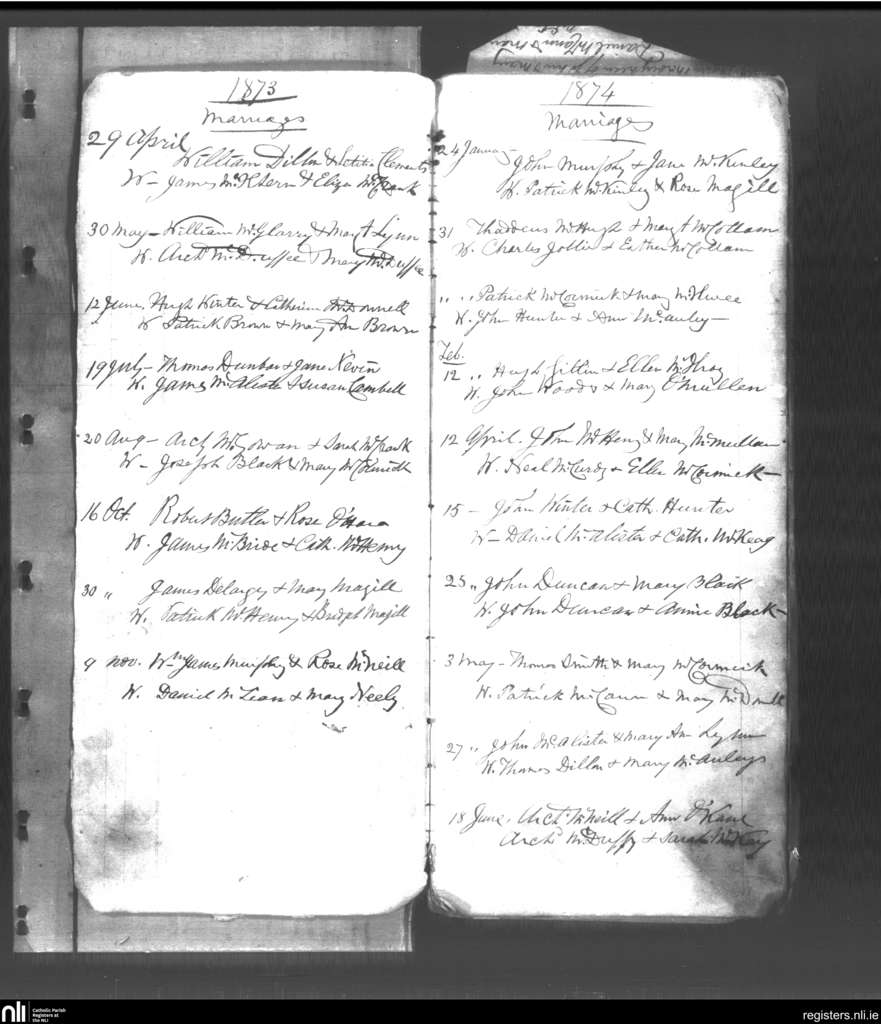 1873
Marriages
29 April
William Dillon & Letitia Clements
W- James & Eliza
30 May - William McGlarry & Mary A Lynn
W. Archd McDuffee & Mary McDuffee
12 June Hugh Winter & Catherine McDonnell
W Patrick Brown & Mary Ann Brown
19 July - Thomas Dunbar & Jane Nevin
W. James McAlister & Susan Cambell
20 Aug - Archy McGowan & Sarah
W- Joseph Black & Mary
16 Oct. Robert Butler & Rose O'Hara
W. James McBride & Cath. McHenry
30 „ James Delargy & Mary Magill
W. Patrick McHenry & Bridget Magill
9 Nov. Wm James Murphy & Rose McNeill
W. Daniel McLean & Mary Neely
1874
Marriages
24 January John Murphy & Jane McKinley
W. Patrick McKinley & Rose Magill
31 Thaddeus McHugh & Mary A McCollam
W. Charles Jollie & Esther McCollam
„ „ Patrick McCormick & Mary McIlwee
W. John Hunter & Ann McAuley-
Feb.
12 „ Hugh & Ellen McIlroy
W. John Woods & Mary O'Mullen
12 April. John McHenry & Mary McMullan
W. Neal McCurdy & Ellen McCormick-
15 - John Winter & Cath. Hunter
W- Daniel McAlister & Cath. McKeag
25 „ John Duncan & Mary Black
W. John Duncan & Annie Black-
3 May - Thomas Smith & Mary McCormick
W. Patrick McCann & Mary
27 „ John McAlister & Mary Ann Lynn
W. Thomas Dillon & Mary McAuley
18 June. Archd McNeill & Ann O'Kane
Archd McDuffy & Sarah McKay
nli
Catholic Parish
Registers at
the NLI
registers.nli.ie